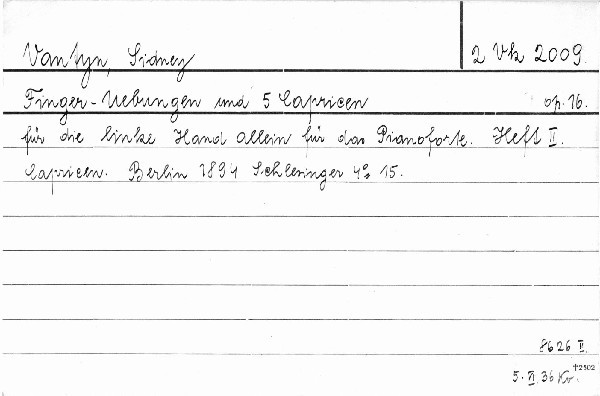 Vantyn, Sidney 2 Vk 2009.
Finger-Uebungen und 5 Capricen op. 16.
für die linke Hand allein für das Pianoforte. Heft II.
Capricen. Berlin 1894 Schlesinger 4° 15.
8626 II
†2502
5. VI. 36 Kr.